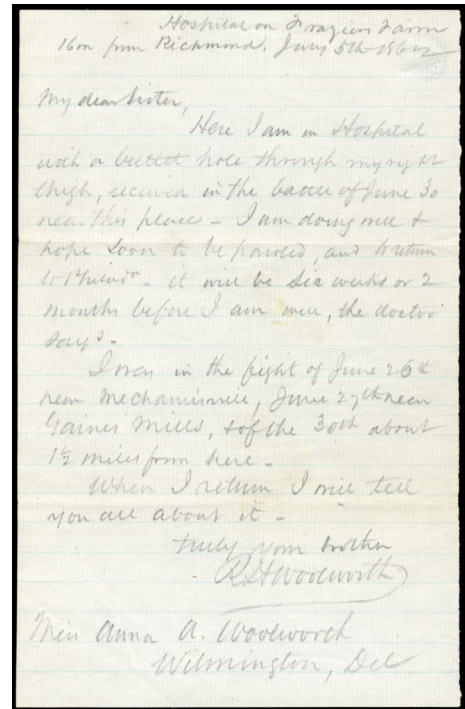 Hospital on Fraziers Farm
16 m from Richmond. July 5th 1862
My dear Sister,
Here I am in Hospital
with a bullet hole through my right
thigh, received in the battle of June 30
near this place - I am doing well &
hope soon to be paroled, and to return
to - it will be six weeks or 2
months before I am well, the doctor
says -
I was in the fight of June 26th
near Mechanicsville, June 27th near
Gaines Mills, & of the 30th about
1½ miles from here -
When I return I will tell
you all about it -
truly your brother
R H Woodworth
Miss Anna A. Woodworth
Wilmington, Del